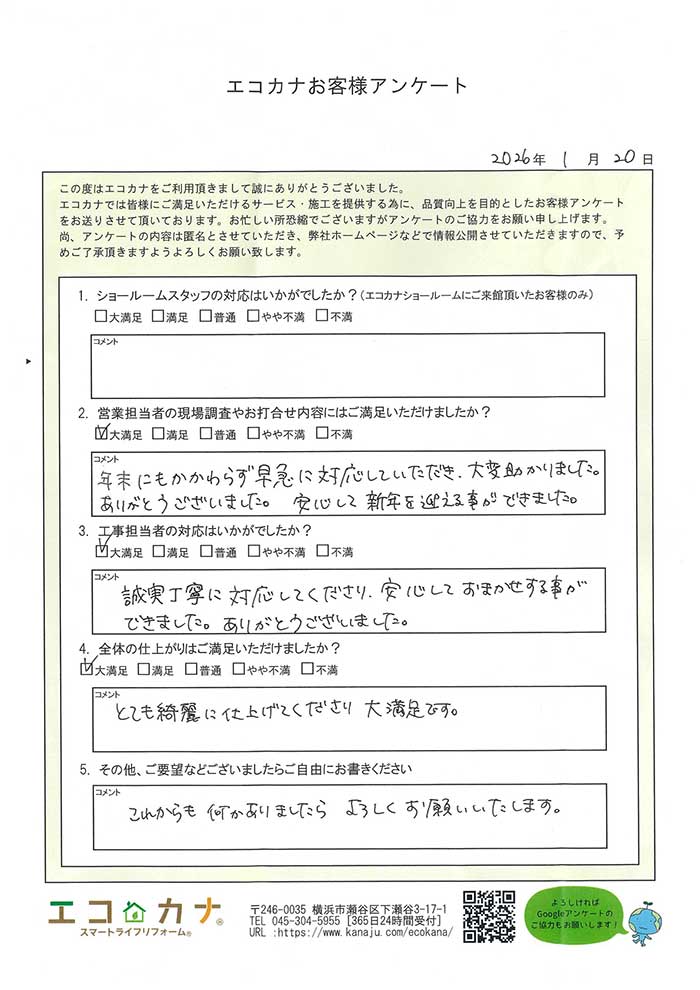 エコカナお客様アンケート
2026年 1月 20日
この度はエコカナをご利用頂きまして誠にありがとうございました。
エコカナでは皆様にご満足いただけるサービス・施工を提供する為に、品質向上を目的としたお客様アンケート
をお送りさせて頂いております。お忙しい所恐縮でございますがアンケートのご協力をお願い申し上げます。
尚、アンケートの内容は匿名とさせていただき、弊社ホームページなどで情報公開させていただきますので、予
めご了承頂きますようよろしくお願い致します。
1. ショールームスタッフの対応はいかがでしたか？(エコカナショールームにご来館頂いたお客様のみ)
□大満足 □満足 □普通 □やや不満 □不満
コメント
2. 営業担当者の現場調査やお打合せ内容にはご満足いただけましたか？
☑大満足 □満足 □普通 □やや不満 □不満
コメント
年末にもかかわらず早急に対応していただき、大変助かりました。
ありがとうございました。 安心して新年を迎える事ができました。
3. 工事担当者の対応はいかがでしたか？
☑大満足 □満足 □普通 □やや不満 □不満
コメント
誠実丁寧に対応してくださり、安心しておまかせする事が
できました。ありがとうございました。
4. 全体の仕上がりはご満足いただけましたか？
☑大満足 □満足 □普通 □やや不満 □不満
コメント
とても綺麗に仕上げてくださり 大満足です。
5. その他、ご要望などございましたらご自由にお書きください
コメント
これからも何かありましたら よろしくお願いいたします。
エコカナ®
スマートライフリフォーム®
〒246-0035 横浜市瀬谷区下瀬谷3-17-1
TEL 045-304-5955 [365日24時間受付]
URL :https://www.kanaju.com/ecokana/
よろしければ
Googleアンケートの
ご協力もお願いします！